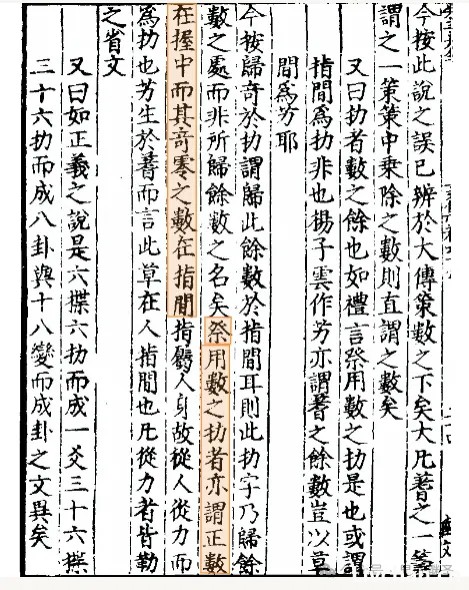 今按此說之誤已辨於大傳策數之下矣大凡蓍之一籌
謂之一策策中乗除之數則直謂之數矣
又曰扐者數之餘也如禮言祭用數之扐是也或謂
指間為扐非也揚子雲作艻亦謂蓍之餘數豈以草
間為艻耶
今按歸奇於扐謂歸此餘數於指間耳則此扐字乃歸餘
數之處而非所歸餘數之名矣祭用數之扐者亦謂正數
在握中而其奇零之數在指間指屬人身故從人從力而
為扐也艻生於蓍而言此草在人指間也凡從力者皆勒
之省文
又曰如正義之說是六揲六扐而成一爻三十六揲
三十六扐而成八卦與十八變而成卦之文異矣